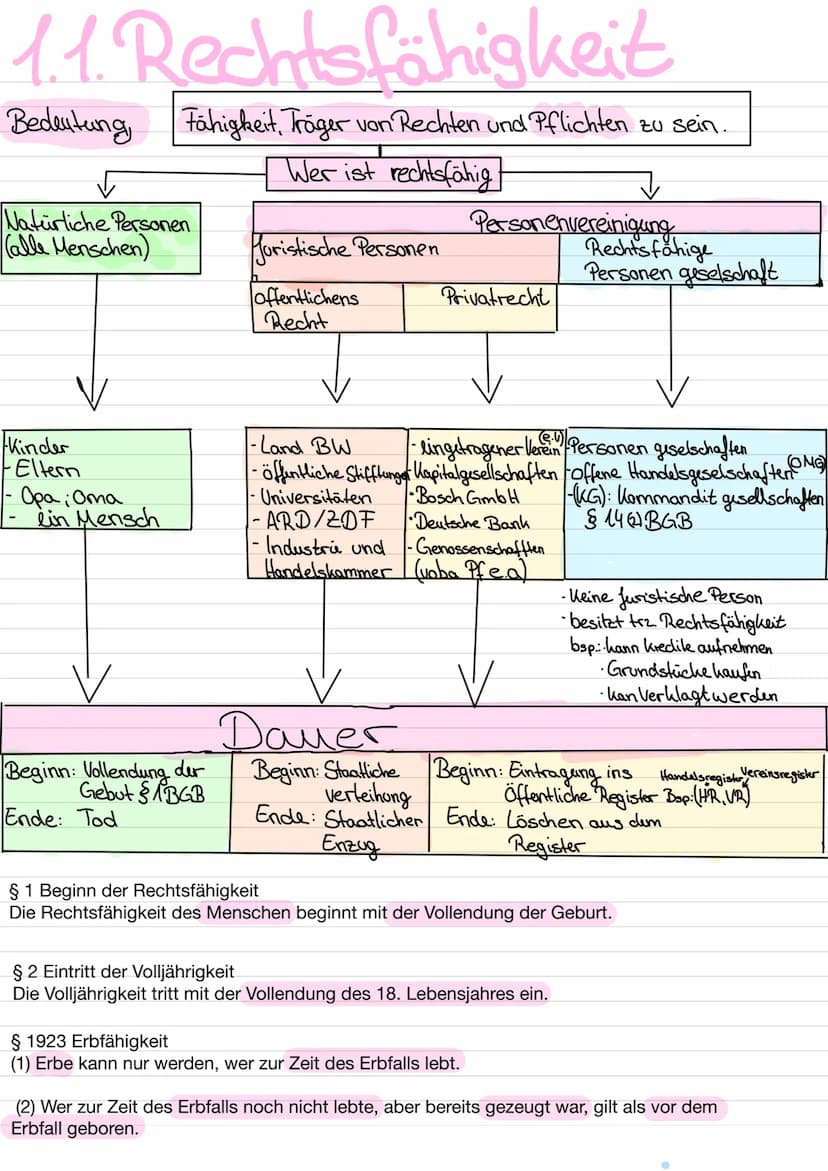 1.1. Rechtsfähigkeit
Bedeutung
Fähigkeit, Träger von Rechten und Pflichten zu sein.
Wer ist rechtsfähig
Natürliche Personen
(alle Menschen)
Personenvereinigung
Juristische Personen
Rechtsfähige
Personen geselschaft
öffentlichens
Recht
Privatrecht
-Kinder
-Eltern
- Opa; Oma
- ein Mensch
- Land BW
- öffentliche Stifftunger
- Universitäten
- ARD/ZDF
- Industrie und
Handelskammer
- eingetragener Verein (e.V)
Kapitalgesellschaften
•Bosch GmbH
•Deutsche Bank
- Genossenschafften
(voba Pf e.a)
-Personen geselschaften
-Offene Handelsgeselschaften (OMG)
-(KG): Kommandit gesellschaften
§ 14 (2) BGB
- Keine Juristische Person
- besitzt trz. Rechtsfähigkeit
bsp.: kann kredite aufnehmen
• Grundstücke kaufen
• kan Verklagt werden
Dauer
Beginn: Vollendung der
Gebut § 1 BGB
Ende: Tod
Beginn: Staatliche
verleihung
Ende: Staatlicher
Enzug
Beginn: Eintragung ins
Handelsregister, Vereinsregister
Öffentliche Register Bsp:(HR, VR)
Ende: Löschen aus dem
Register
§ 1 Beginn der Rechtsfähigkeit
Die Rechtsfähigkeit des Menschen beginnt mit der Vollendung der Geburt.
§ 2 Eintritt der Volljährigkeit
Die Volljährigkeit tritt mit der Vollendung des 18. Lebensjahres ein.
§ 1923 Erbfähigkeit
(1) Erbe kann nur werden, wer zur Zeit des Erbfalls lebt.
(2) Wer zur Zeit des Erbfalls noch nicht lebte, aber bereits gezeugt war, gilt als vor dem
Erbfall geboren.